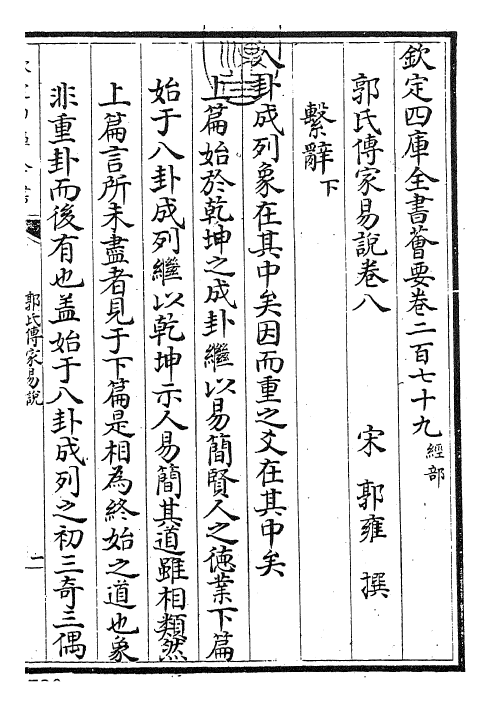 欽定四庫全書薈要卷二百七十九經部
郭氏傳家易說卷八
宋 郭雍 撰
繫辭下
八卦成列象在其中矣因而重之爻在其中矣
上篇始於乾坤之成卦繼以易簡賢人之德業下篇
始于八卦成列繼以乾坤示人易簡其道雖相類然
上篇言所未盡者見于下篇是相為終始之道也象
非重卦而後有也蓋始于八卦成列之初三奇三偶
郭氏傳家易說
一